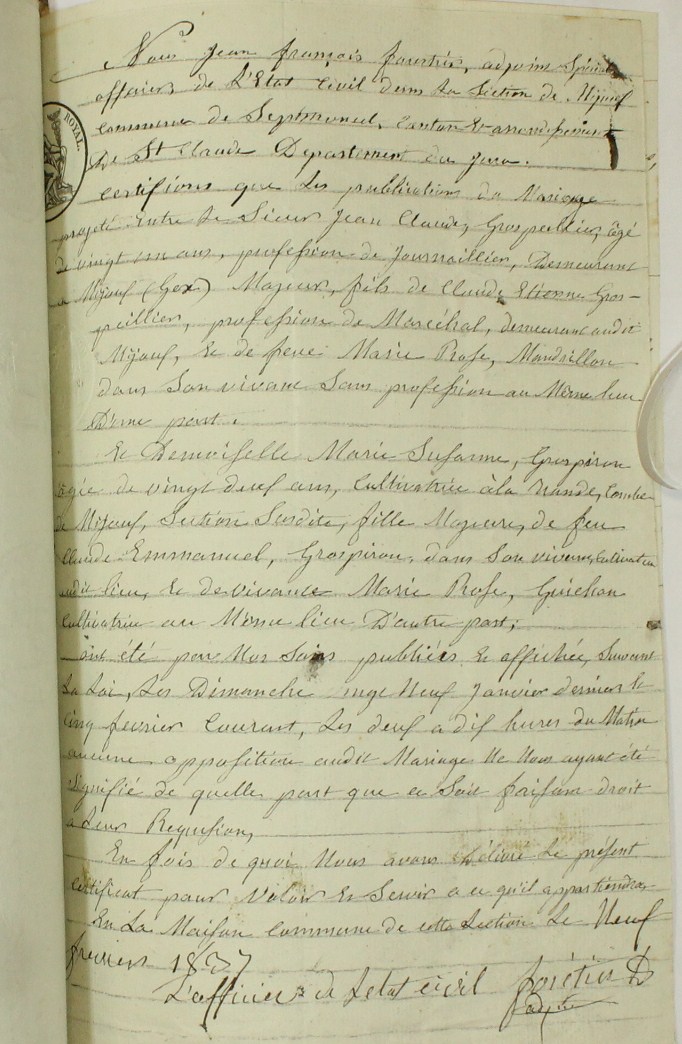 ROYAL.
Nous Jean françois forestier, adjoint Spécial
officier de L'Etat Civil dans La Section de Mijouf
commune de Septmoncel, Canton Et arrondissement
De St Claude Departement du Jura.
Certifions que Les publications du Mariage
projeté Entre Le Sieur Jean Claude, Grospellier, âgé
De vingt un ans, profession de Journaillier, Demeurant
a Mijouf (Gex) Majeur, fils de Claude Etienne Gros-
peillier, profession de Maréchal, demeurant audit
Mijouf, Et de feue Marie Rose, Mandrillon
dans Son vivant Sans profession au Même lieu
D'une part.
Et Demoiselle Marie Susanne, Grospiron
agée de vingt deux ans, Cultivatrice à la Combe
de Mijouf, Section Susdite, fille Majeure, de feu
Claude Emmanuel, Grospiron, dans Son vivant, Cultivateur
audit lieu, Et de vivante Marie Rose, Guichon
Cultivatrice au Même lieu D'autre part;
ont été par Nos Soins publiées Et affichée, Suivant
La Loi, Les Dimanche vingt Neuf Janvier dernier Et
cinq fevrier Courant, Les deux a dix hures du Matin
aucune opposition audit Mariage Ne Nous ayant été
Signifié de quelle part que ce Soit faisan droit
a Leur Requision,
En fois de quoi Nous avons Délivré Le présent
Certificat pour Valoir Et Servir a ce qu'il appartiendra
En La Maison Commune de cette Section Le Neuf
fevrier 1837
L'officier de Letat civil forétier
adjt